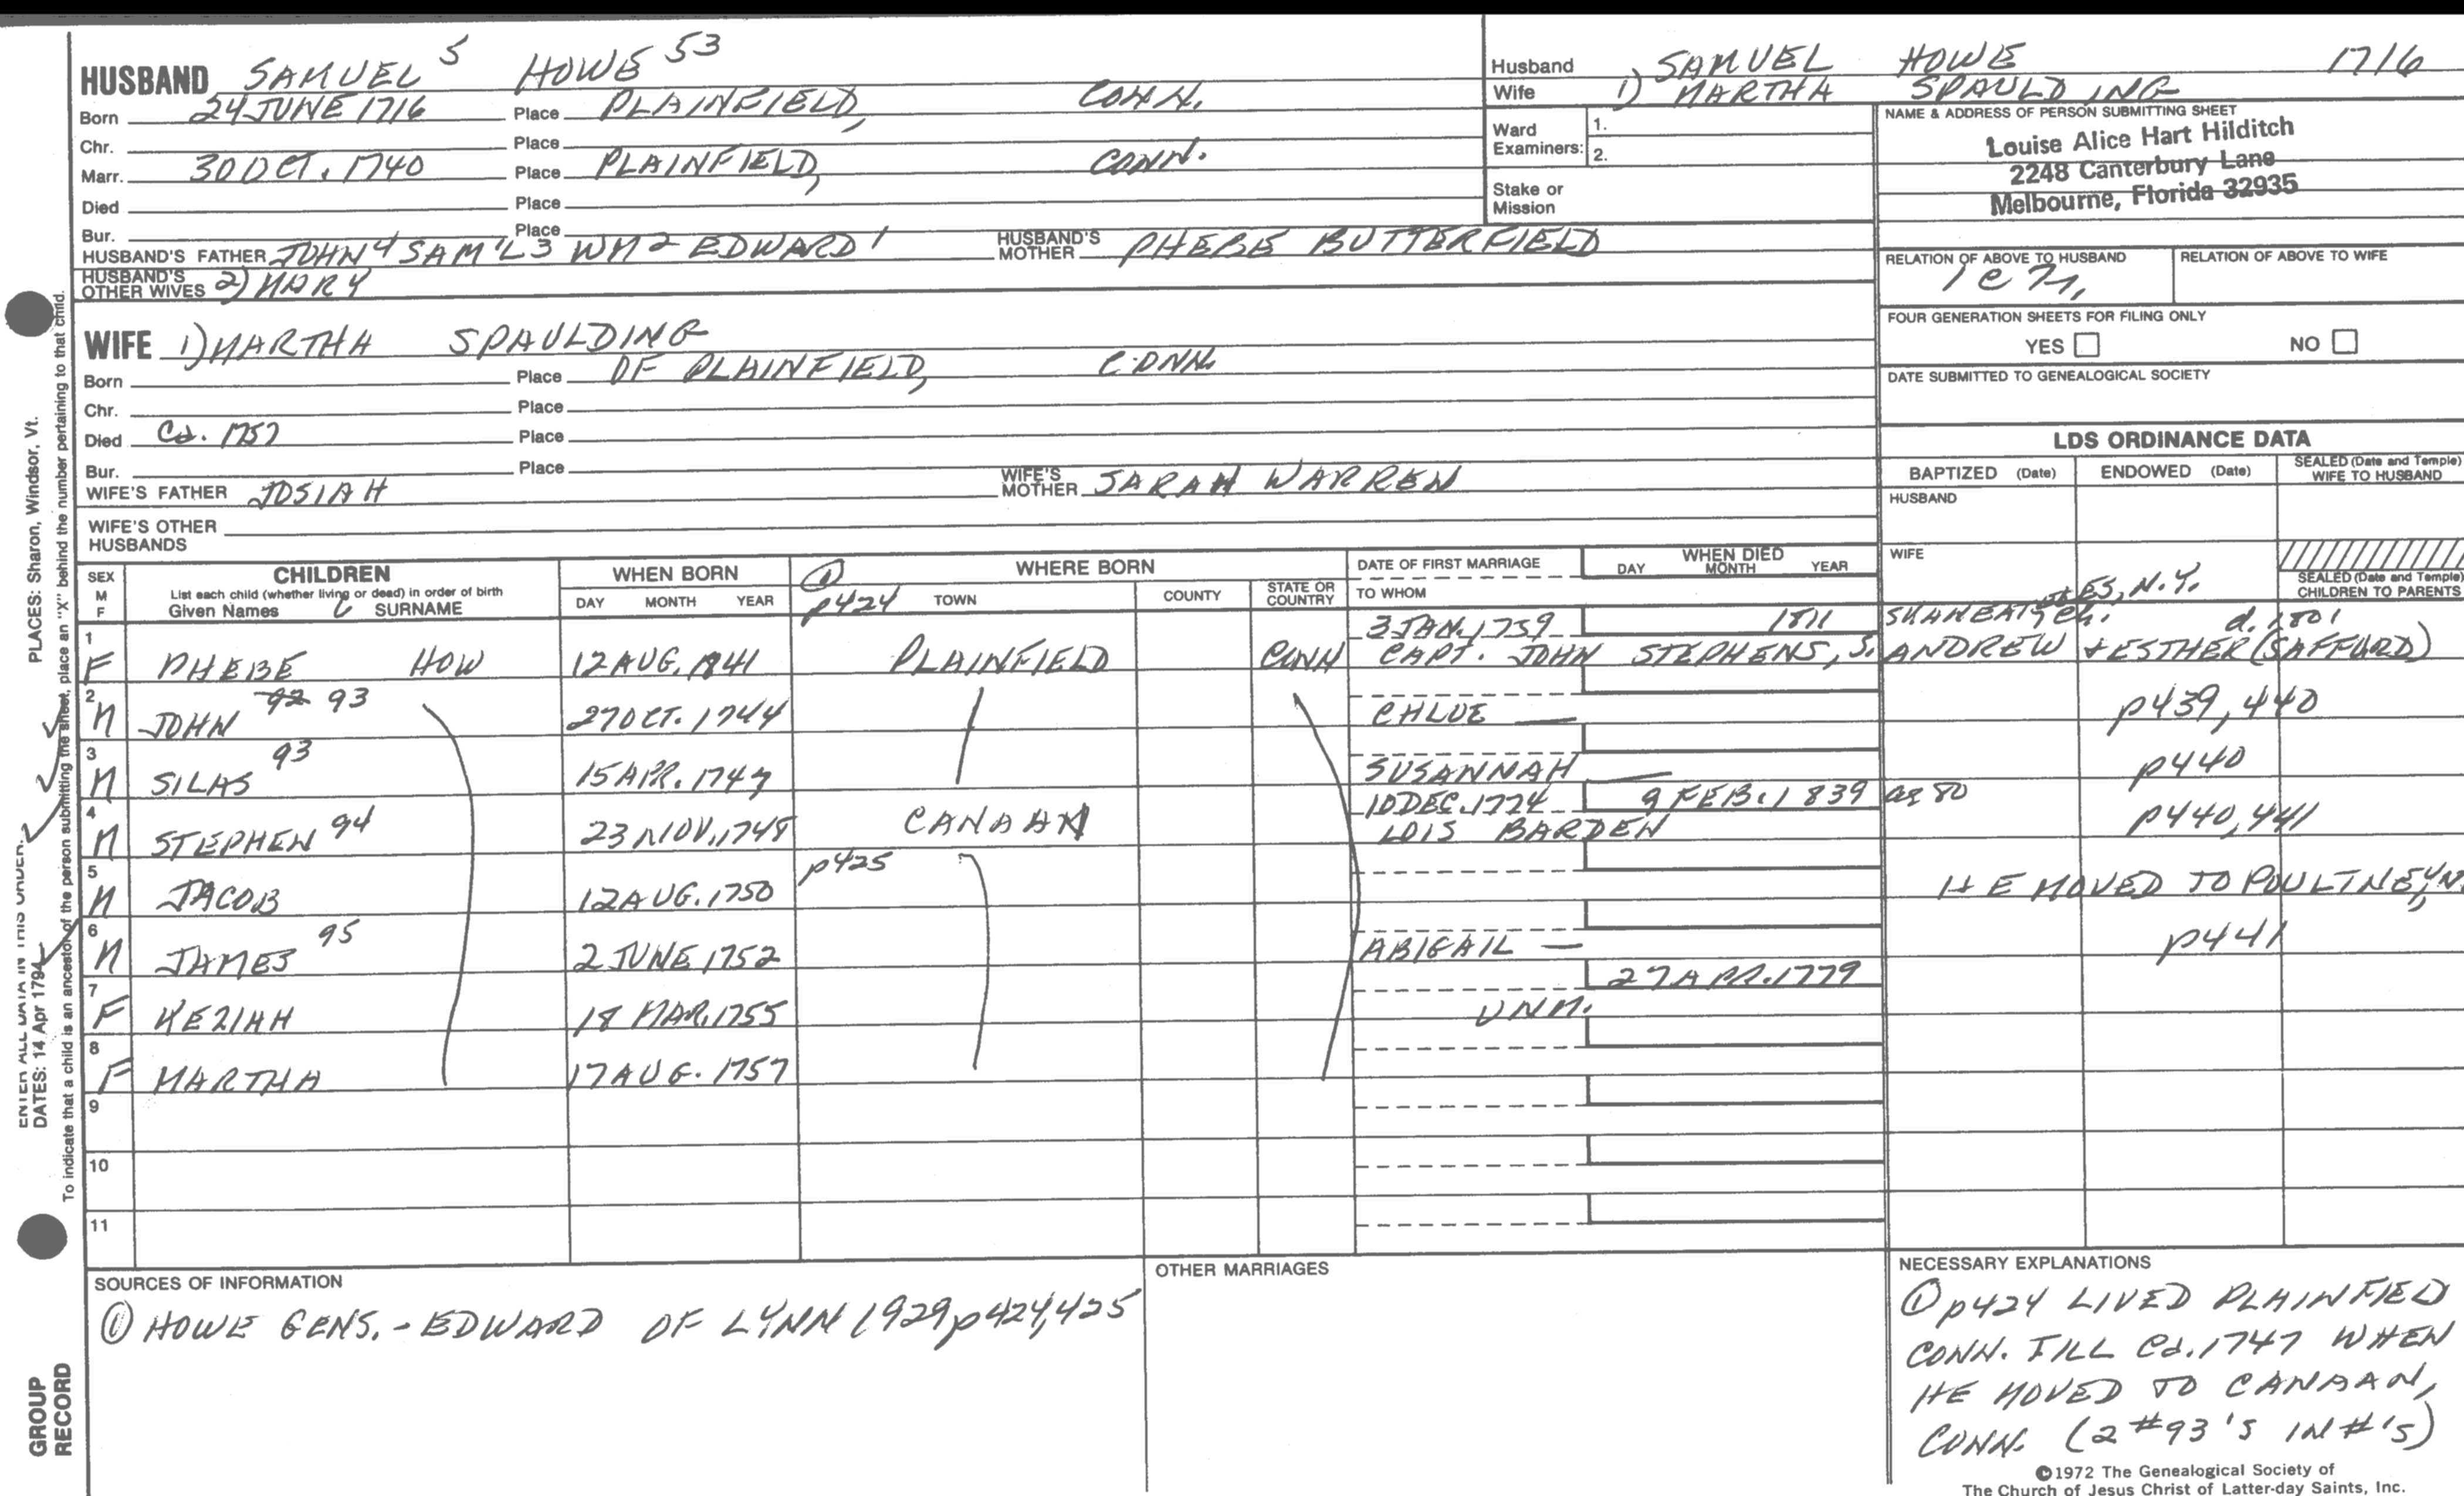 HUSBAND SAMUEL 5 HOWE 53
Born 24 JUNE 1716 Place PLAINFIELD, CONN.
Chr. Place
Marr. 30 OCT. 1740 Place PLAINFIELD, CONN.
Died Place
Bur. Place
HUSBAND'S FATHER JOHN 4 SAM'L 3 WM 2 EDWARD 1 HUSBAND'S MOTHER PHEBE BUTTERFIELD
HUSBAND'S OTHER WIVES 2) MARY
WIFE 1) MARTHA SPAULDING
Born Place OF PLAINFIELD, CONN.
Chr. Place
Died Ca. 1757 Place
Bur. Place
WIFE'S FATHER JOSIAH WIFE'S MOTHER SARAH WARREN
WIFE'S OTHER HUSBANDS
Husband SAMUEL HOWE 1716
Wife 1) MARTHA SPAULDING
Ward Examiners: 1.
2.
Stake or Mission
NAME & ADDRESS OF PERSON SUBMITTING SHEET
Louise Alice Hart Hilditch
2248 Canterbury Lane
Melbourne, Florida 32935
RELATION OF ABOVE TO HUSBAND RELATION OF ABOVE TO WIFE
FOUR GENERATION SHEETS FOR FILING ONLY
YES NO
DATE SUBMITTED TO GENEALOGICAL SOCIETY
LDS ORDINANCE DATA
BAPTIZED (Date) ENDOWED (Date) SEALED (Date and Temple) WIFE TO HUSBAND
HUSBAND
WIFE
SEALED (Date and Temple) CHILDREN TO PARENTS
SEX M F
CHILDREN
List each child (whether living or dead) in order of birth
Given Names SURNAME
WHEN BORN
DAY MONTH YEAR
① p424
WHERE BORN
TOWN COUNTY STATE OR COUNTRY
DATE OF FIRST MARRIAGE
TO WHOM
WHEN DIED
DAY MONTH YEAR
1 F PHEBE HOW 12 AUG. 1841 PLAINFIELD CONN 3 JAN. 1759 1811 N.Y. d. 1801
CAPT. JOHN STEPHENS, S. ANDREW + ESTHER (SAFFORD)
2 M JOHN 92 93 27 OCT. 1744 CHLOE — p439, 440
3 M SILAS 93 15 APR. 1747 SUSANNAH — p440
4 M STEPHEN 94 23 NOV. 1748 CANAAN 10 DEC. 1774 9 FEB. 1839 ae 80
LOIS BARDEN p440, 441
5 M JACOB 12 AUG. 1750 p425 HE MOVED TO POULTNEY,
6 M JAMES 95 2 JUNE 1752 ABIGAIL — p441
7 F KEZIAH 18 MAR. 1755 UNM. 27 APR. 1779
8 F MARTHA 17 AUG. 1757
9
10
11
SOURCES OF INFORMATION
① HOWE GENS. - EDWARD OF LYNN 1929 p424, 425
OTHER MARRIAGES
NECESSARY EXPLANATIONS
① p424 LIVED PLAINFIELD
CONN. TILL Ca. 1747 WHEN
HE MOVED TO CANAAN,
CONN. (2 #93'S IN #'S)
©1972 The Genealogical Society of
The Church of Jesus Christ of Latter-day Saints, Inc.
PLACES: Sharon, Windsor, Vt.
ENTER ALL DATA IN THIS ORDER:
DATES: 14 Apr 1794
To indicate that a child is an ancestor of the person submitting the sheet, place an "X" behind the number pertaining to that child.
GROUP
RECORD